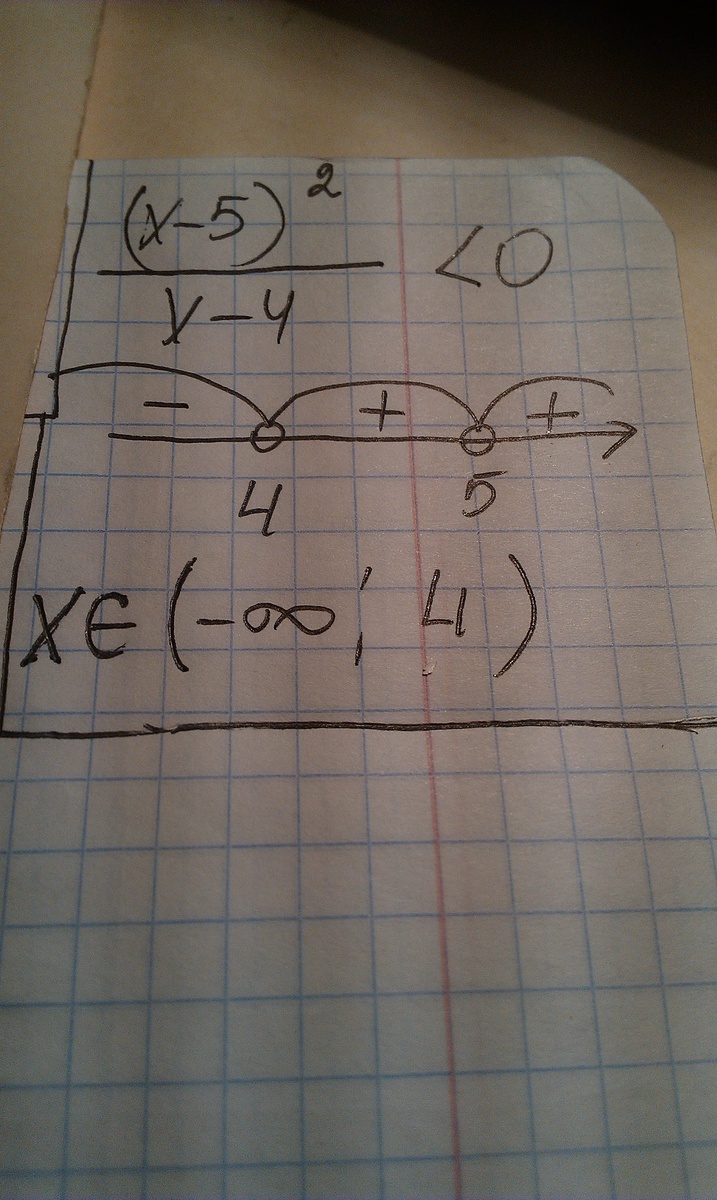 (x-5)²
x-4
<0
- + +
4 5
x∈(-∞; 4)